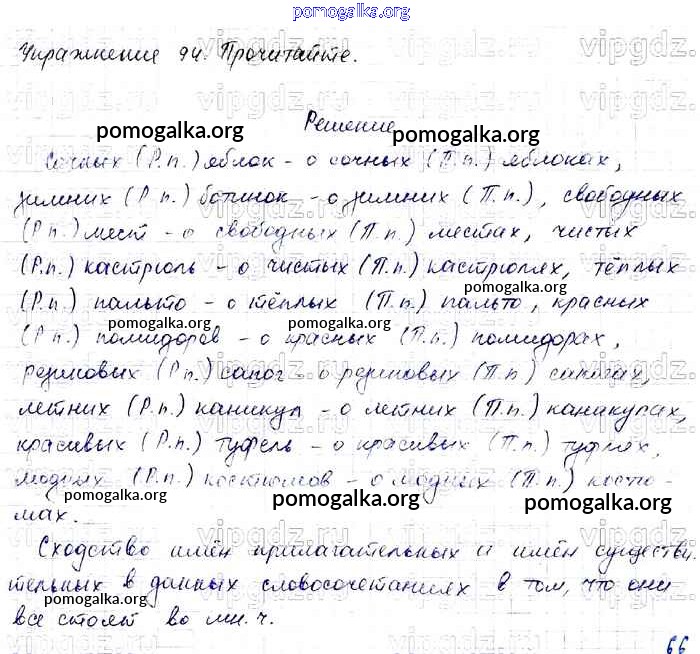 pomogalka.org
Упражнение 94. Прочитайте.
Решение
pomogalka.org pomogalka.org
Сочных (Р.п.) яблок - о сочных (П.п.) яблоках,
зимних (Р.п.) ботинок - о зимних (П.п.), свободных
(Р.п.) мест - о свободных (П.п.) местах, чистых
(Р.п.) кастрюль - о чистых (П.п.) кастрюлях, тёплых
pomogalka.org
(Р.п.) пальто - о тёплых (П.п.) пальто, красных
pomogalka.org pomogalka.org pomogalka.org
(Р.п.) помидоров - о красных (П.п.) помидорах,
резиновых (Р.п.) сапог - о резиновых (П.п) сапогах,
летних (Р.п.) каникул - о летних (П.п.) каникулах,
красивых (Р.п.) туфель - о красивых (П.п.) туфлях,
модных (Р.п.) костюмов - о модных (П.п.) костю-
pomogalka.org pomogalka.org pomogalka.org
мах.
Сходство имён прилагательных и имён существи-
тельных в данных словосочетаниях в том, что они
все стоят во мн. ч.
66